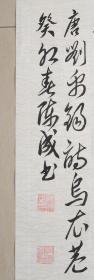 唐劉禹錫詩烏衣巷
癸卯春陳成書